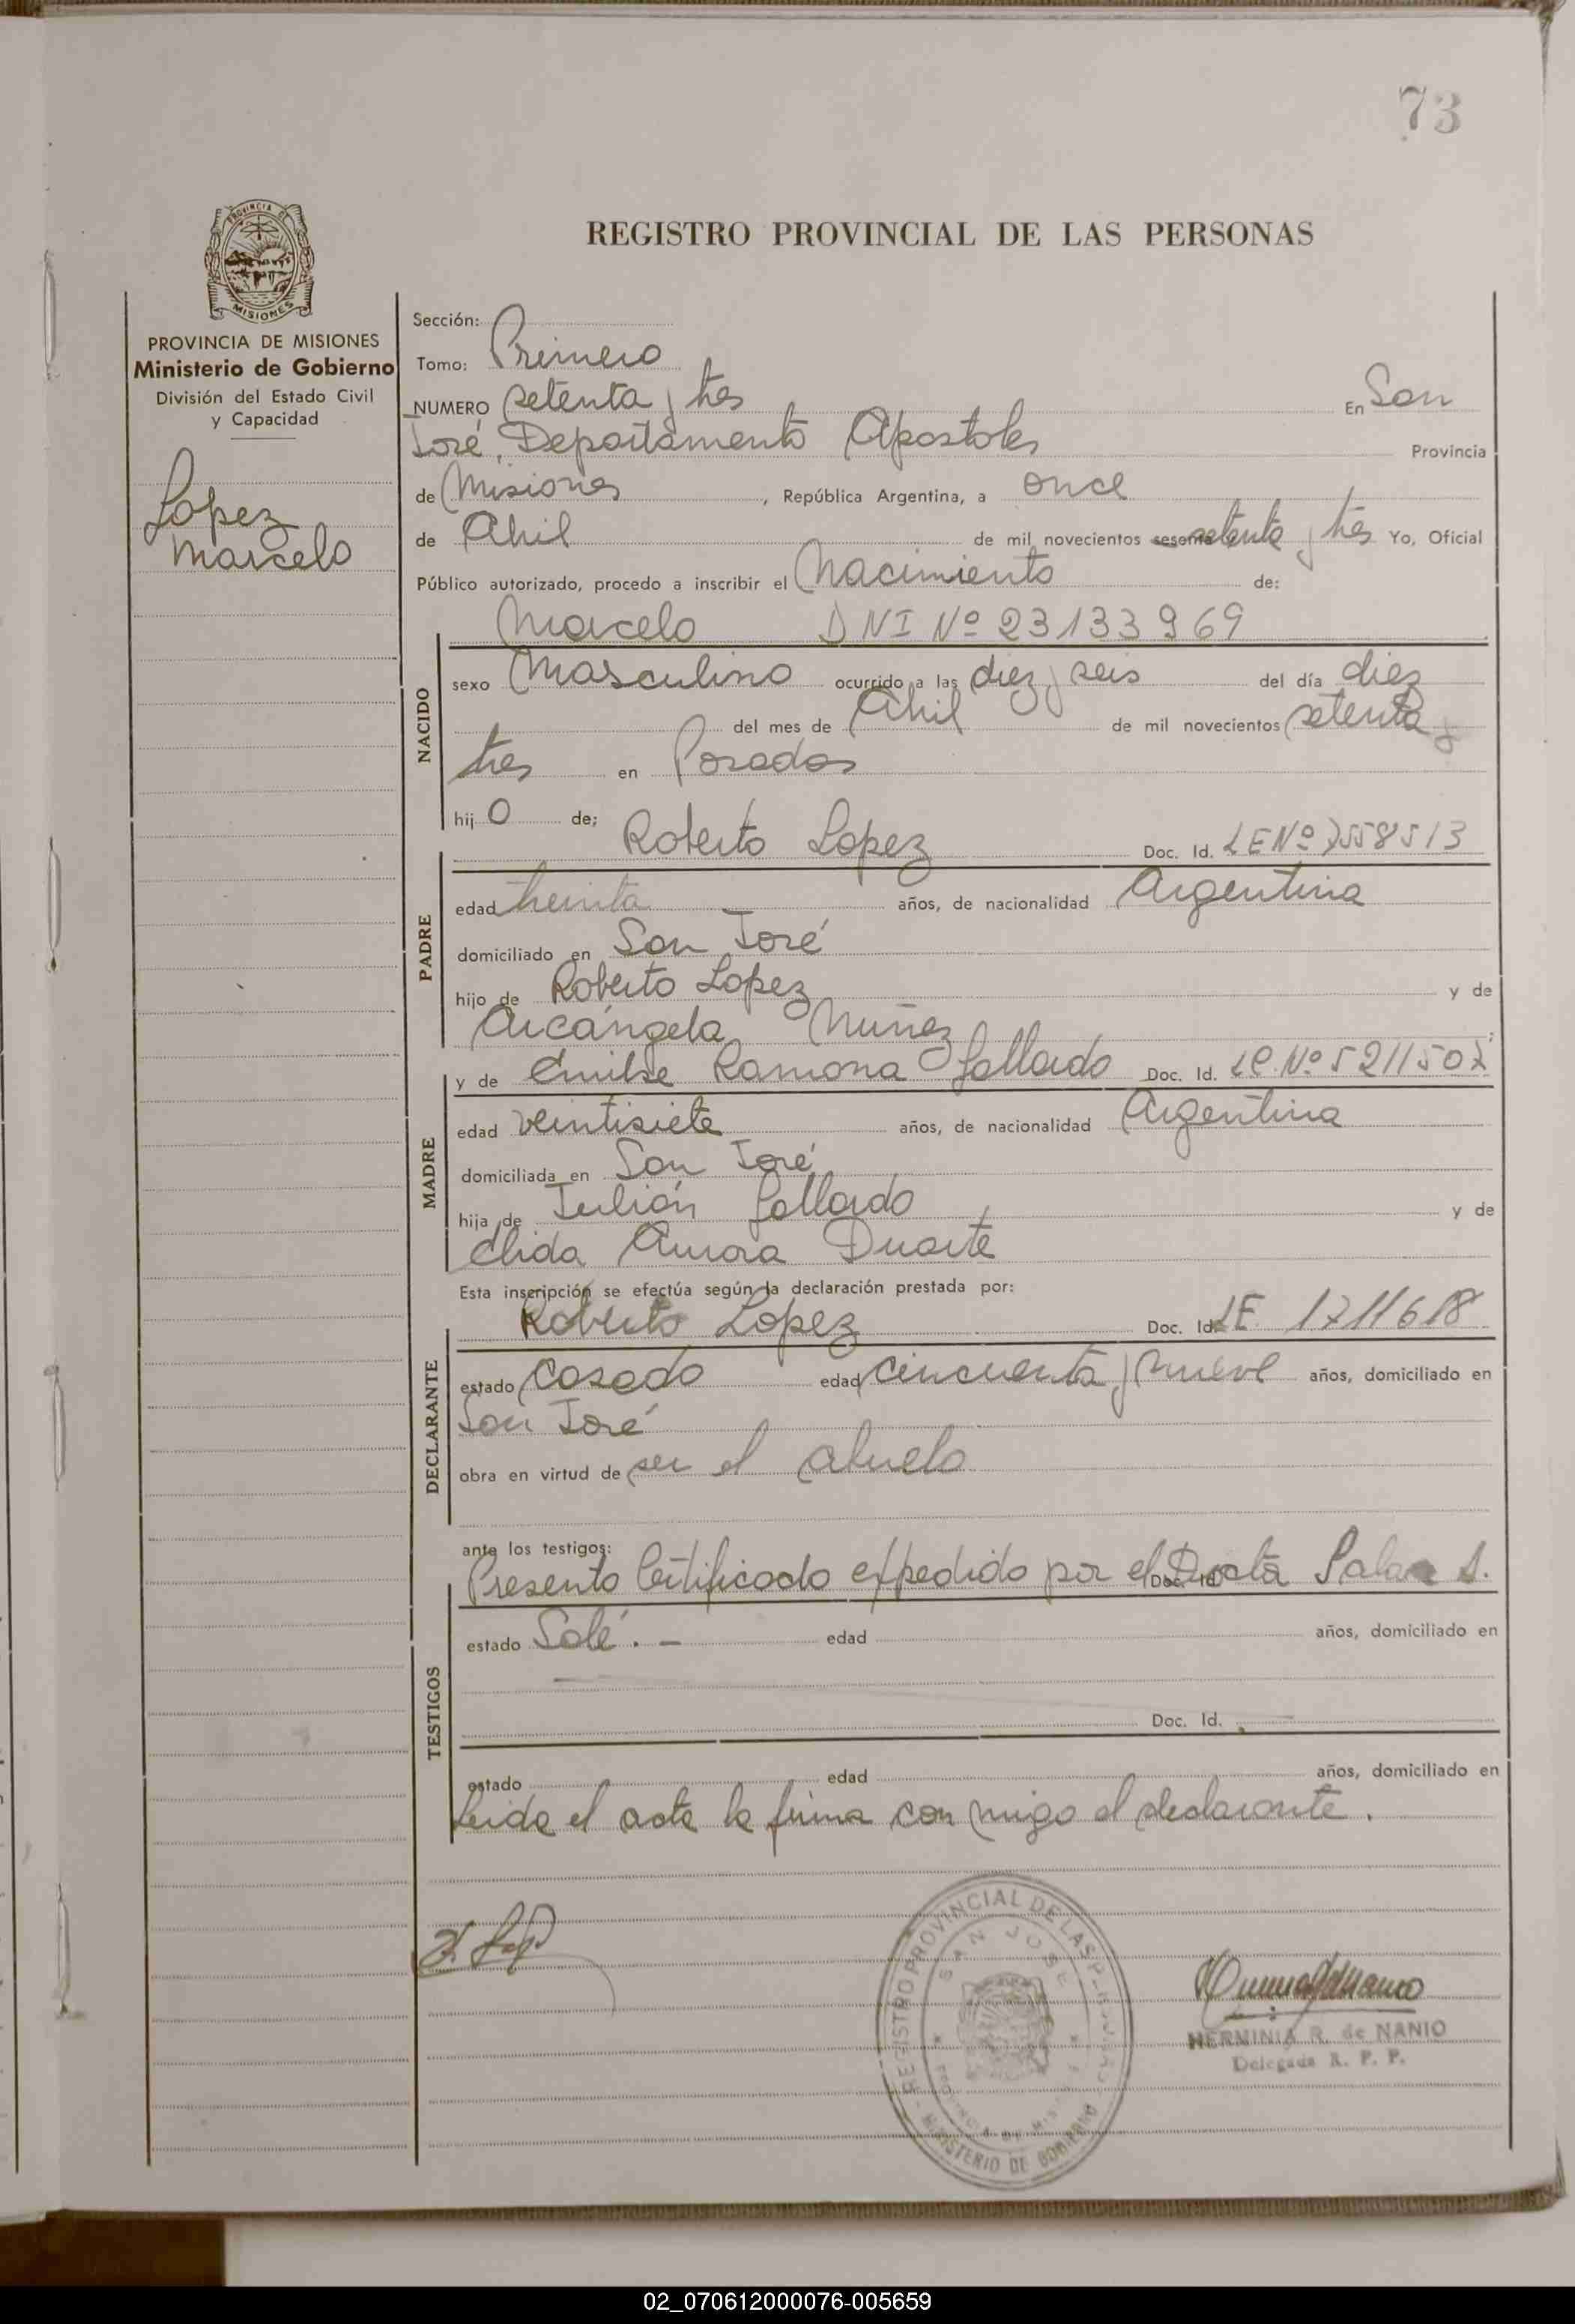 73
PROVINCIA DE
MISIONES
REGISTRO PROVINCIAL DE LAS PERSONAS
PROVINCIA DE MISIONES
Ministerio de Gobierno
División del Estado Civil
y Capacidad
Lopez
Marcelo
Sección:
Tomo: Primero
NUMERO setenta y tres En San
José, Departamento Apostoles Provincia
de Misiones, República Argentina, a once
de Abril de mil novecientos sesenta setenta y tres Yo, Oficial
Público autorizado, procedo a inscribir el Nacimiento de:
Marcelo DNI Nº 23133969
NACIDO
sexo Masculino ocurrido a las diez y seis del día diez
del mes de Abril de mil novecientos setenta y
tres en Posadas
hijo de;
Roberto Lopez Doc. Id. LE Nº 7558513
PADRE
edad treinta años, de nacionalidad Argentina
domiciliado en San José
hijo de Roberto Lopez y de
Arcángela Nuñez;
y de Emilse Ramona Gallardo Doc. Id. LC. Nº 5211507
MADRE
edad veintisiete años, de nacionalidad Argentina
domiciliada en San José
hija de Julián Gallardo y de
Elida Aurora Duarte
Esta inscripción se efectúa según la declaración prestada por:
Roberto Lopez Doc. Id. LE. 1711618
DECLARANTE
estado Casado edad cincuenta y nueve años, domiciliado en
San José
obra en virtud de ser el abuelo
ante los testigos:
Presento Certificado expedido por el Doc. Id. S.
TESTIGOS
estado Solé. - edad años, domiciliado en
Doc. Id.
estado edad años, domiciliado en
Leida el acta la firma con migo el declarante.
REGISTRO PROVINCIAL DE LAS PERSONAS
SAN JOSE
PROVINCIA DE MISIONES
MINISTERIO DE GOBIERNO
HERMINIA R. de NANIO
Delegada R. P. P.
02_070612000076-005659